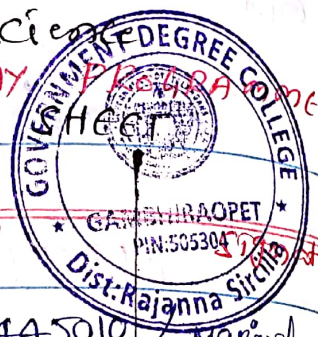 cience
PROGRAMME
SHEET
GOVERNMENT DEGREE COLLEGE
GAMBHIRAOPET
PIN:505304
Dist:Rajanna Sircilla